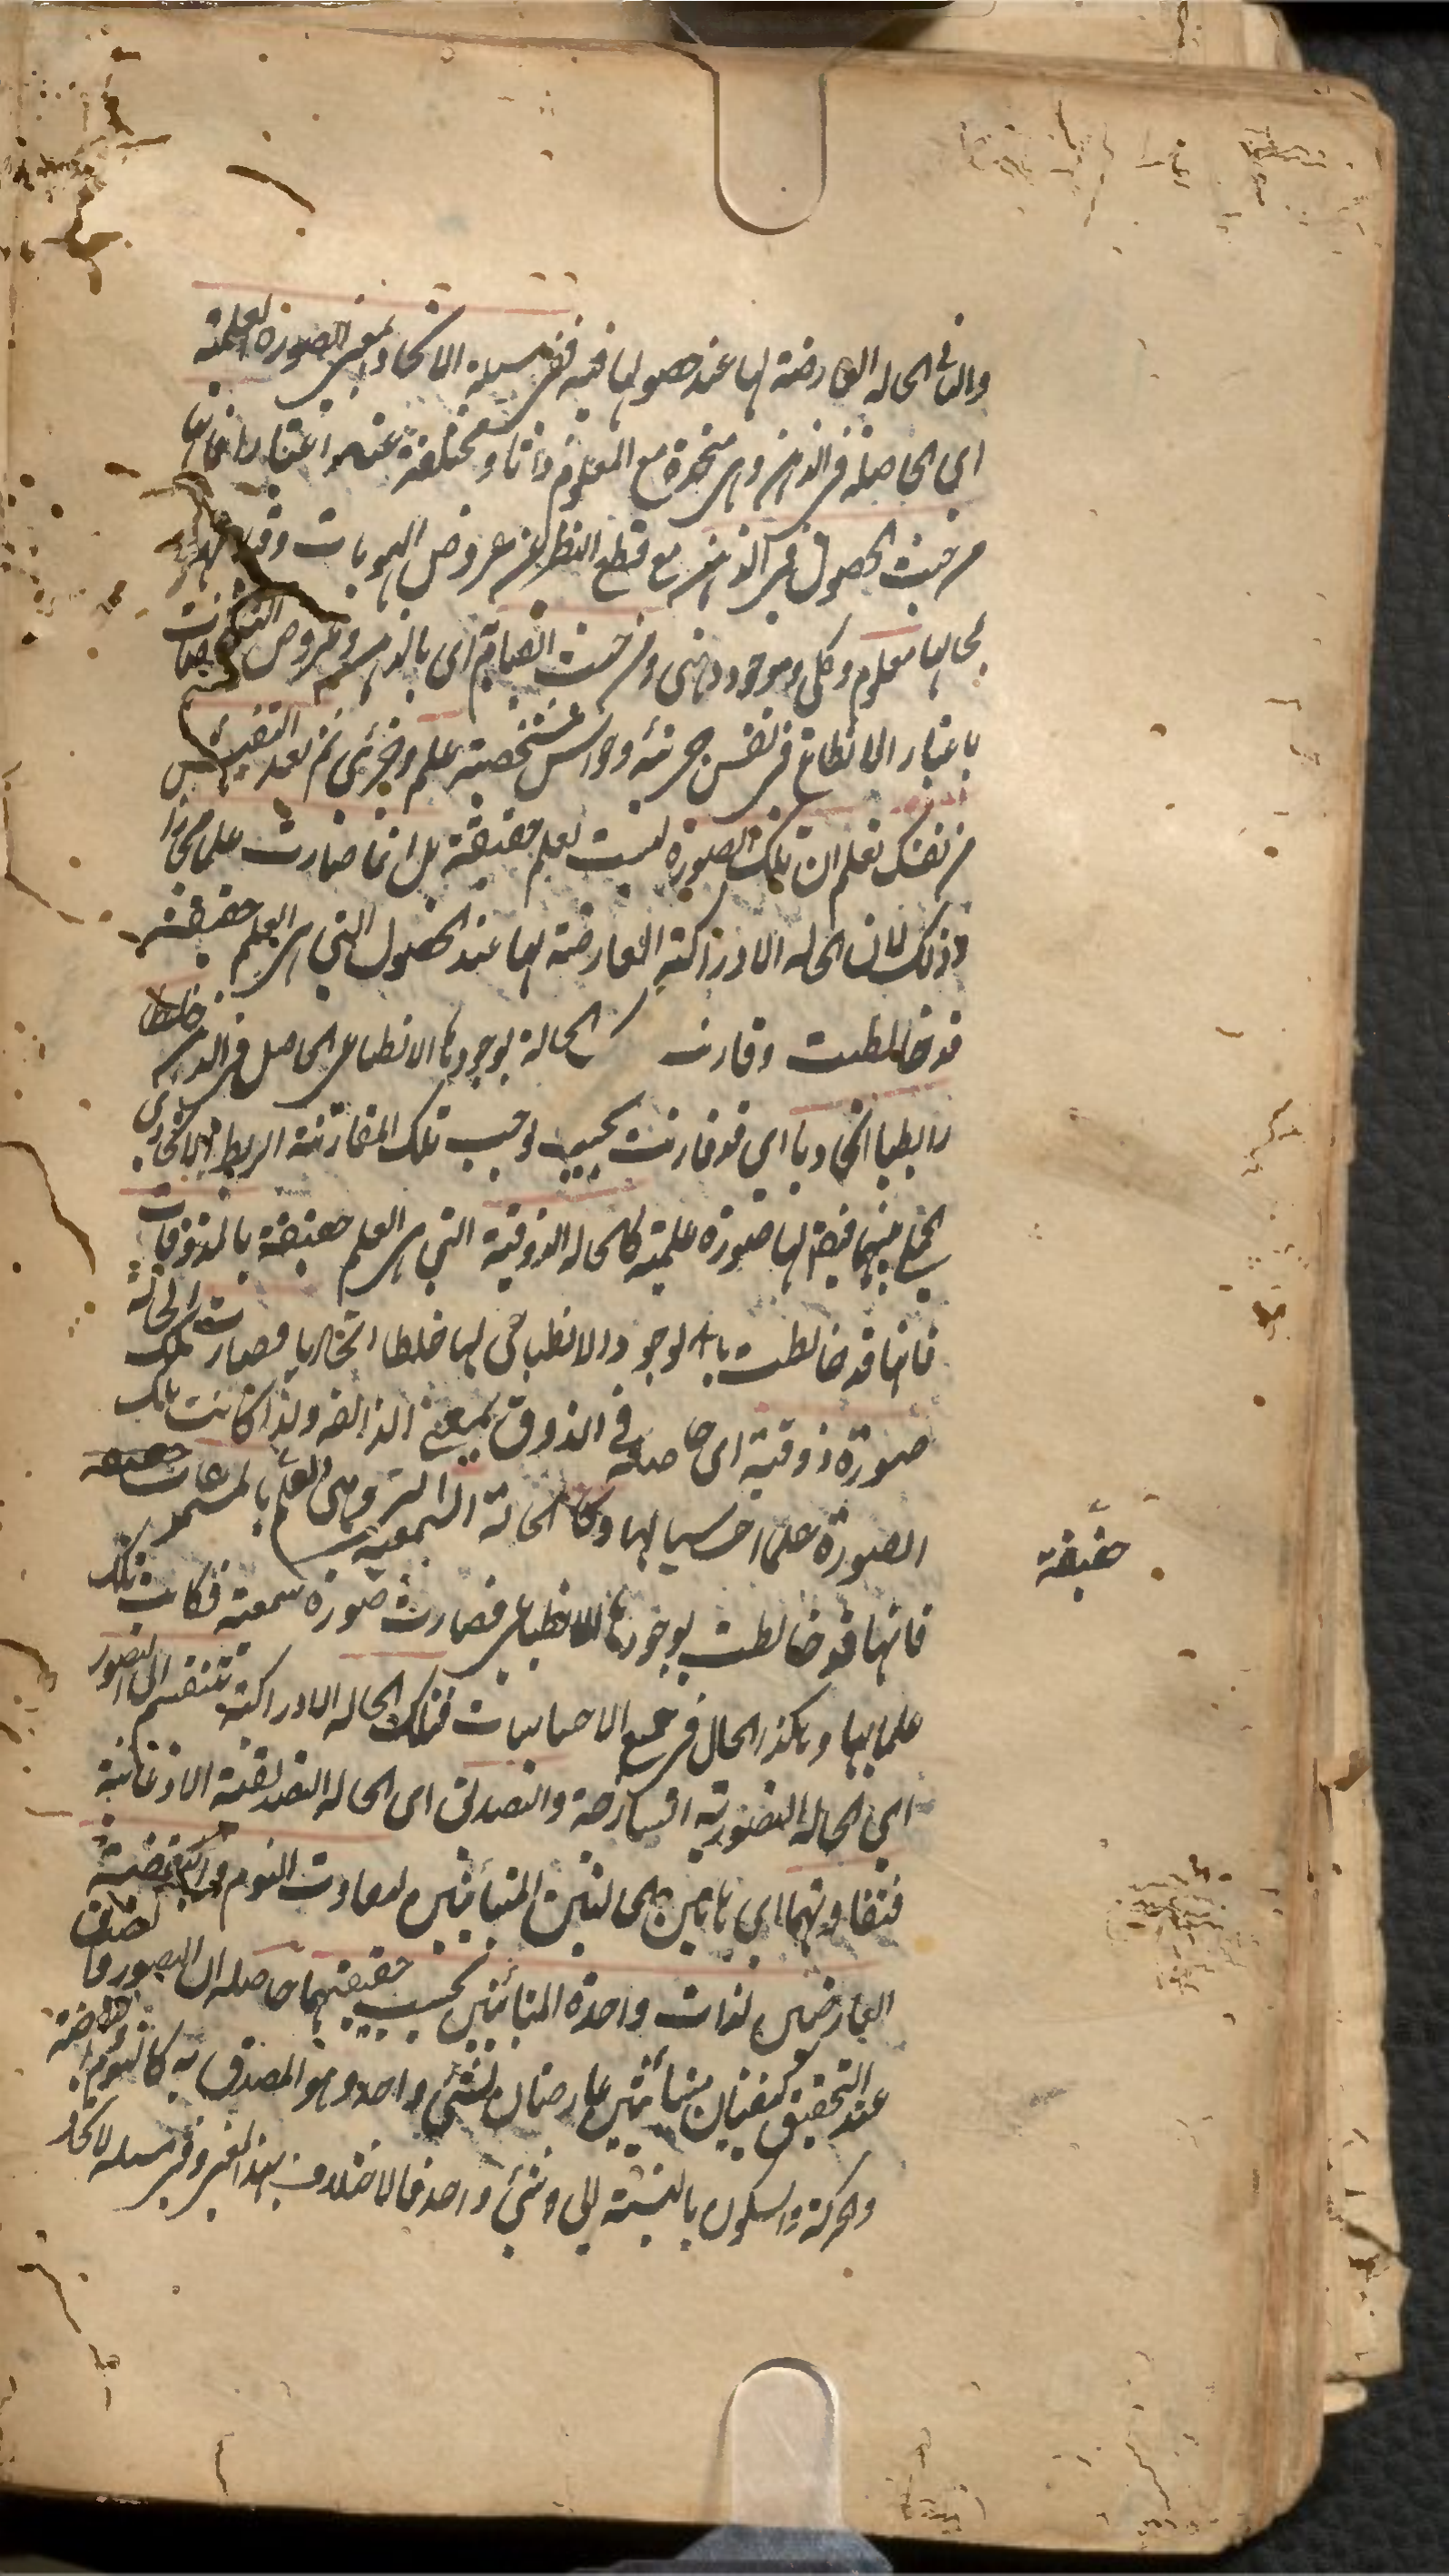 والثاني الحالة العارضة لها عند حصولها فيه ففي مسئلة الاتحاد بمعنى الصورة العلمية
اي الحاصلة في الذهن وهي متحدة مع المعلوم ذاتا ومختلفة عنه اعتبارا فانها
من حيث الحصول في الذهن مع قطع النظر عن عروض الهويات
لحالها معلوم وكلي وموجود ذهني ومن حيث القيام اي بالذهن وعروض التشخصات
باعتبار الانطباع في نفس جزئية وحواس شخصية علم وجزئي ثم بعد التفتيش
من نفسك تعلم ان تلك الصورة ليست بعلم حقيقة بل انما صارت علما مجازا
وذلك لان الحالة الادراكية العارضة لها عند الحصول التي هي العلم حقيقة
قد خالطت وقارنت الحالة بوجودها الانطباعي الحاصل في الذهن خلطا
رابطيا اتحاديا اي قد قارنت بحيث لوجب تلك المقارنة الربط الاتحادي
بينهما فيقم لها صورة علمية كالحالة الذوقية التي هي العلم حقيقة بالمذوقات
فانها قد خالطت بالوجود الانطباعي لها خلطا اتحاديا فصارت تلك الحالة
صورة ذوقية اي حاصلة في الذوق بمعنى الذائقة ولذا كانت تلك
الصورة علما احسيا لها وكالحالة السمعية وهي العلم بالمسموعات حقيقة
فانها قد خالطت بوجودها الانطباعي فصارت صورة سمعية فكانت تلك
علما بها وهكذا الحال في جميع الاحساسات فتلك الحالة الادراكية تنقسم الى التصور
اي الحالة التصورية الساذجة والتصديق اي الحالة التصديقية الاذعانية
فتفاوتهما اي ما بين الحالتين المتبائنتين كتفاوت النوم واليقظة
العارضين لذات واحدة المتبائنين بحسب حقيقتهما حاصله ان التصور والتصديق
عند التحقيق كيفيتان متبائنتين عارضتان لشيء واحد وهو المصدق به كالنوم واليقظة
والحركة والسكون بالنسبة الى شيء واحد فالاختلاف بهذا المعنى وفي مسئلة الاتحاد
حقيقة